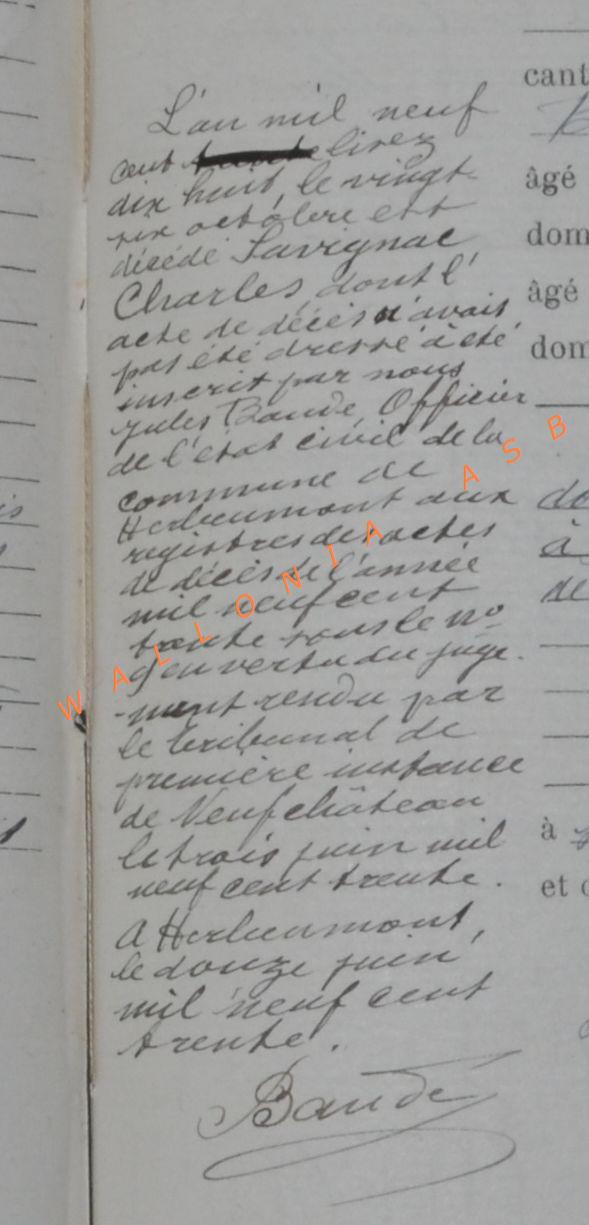 L'an mil neuf
cent trente lirez
dix huit, le vingt
six octobre est
décédé Savignac
Charles, dont l'
acte de décès n'avait
pas été dressé a été
inscrit par nous
Jules Baude, Officier
de l'état civil de la
commune de
Herbeumont aux
registres des actes
de décès de l'année
mil neuf cent
trente sous le no
9 en vertu du juge-
-ment rendu par
le tribunal de
première instance
de Neufchâteau
le trois juin mil
neuf cent trente.
A Herbeumont,
le douze juin
mil neuf cent
trente.
Baude
WALLONIA ASB
cant
âgé
dom
âgé
dom
do
à
de
à
et